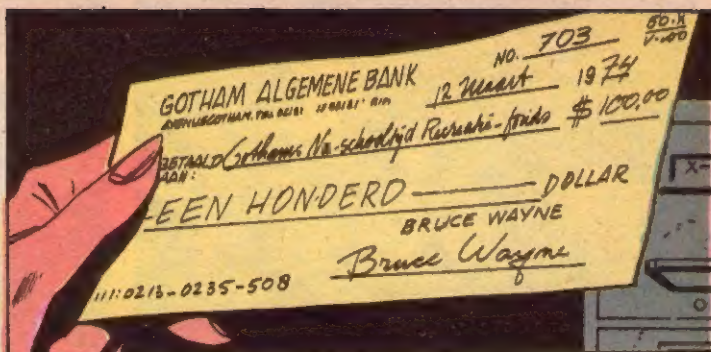 NO. 703
GOTHAM ALGEMENE BANK
12 Maart 1974
BETAALD AAN: Gothams Na-schooltijd Recreatie-fonds $ 100,00
EEN HONDERD DOLLAR
BRUCE WAYNE
Bruce Wayne
0213-0235-508
X-